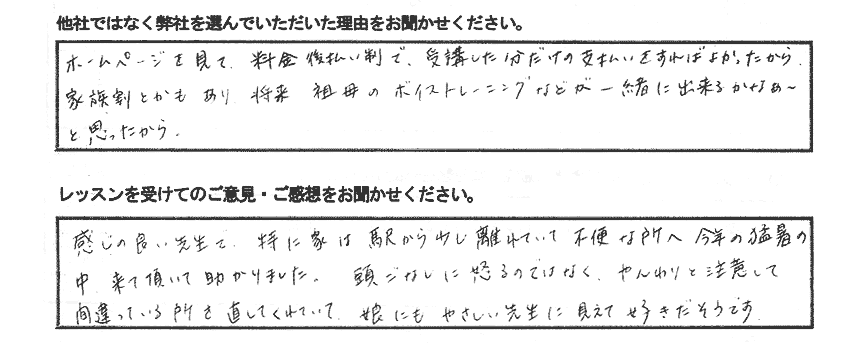 他社ではなく弊社を選んでいただいた理由をお聞かせください。
ホームページを見て、料金後払い制で、受講した分だけの支払いをすればよかったから、
家族割とかもあり、将来 祖母のボイストレーニングなどが一緒に出来るかなぁ～
と思ったから。
レッスンを受けてのご意見・ご感想をお聞かせください。
感じの良い先生で、特に家は駅から少し離れていて不便な所へ今年の猛暑の
中、来て頂いて助かりました。頭ごなしに怒るのではなく、やんわりと注意して
間違っている所を直してくれていて、娘にもやさしい先生に見えて好きだそうです